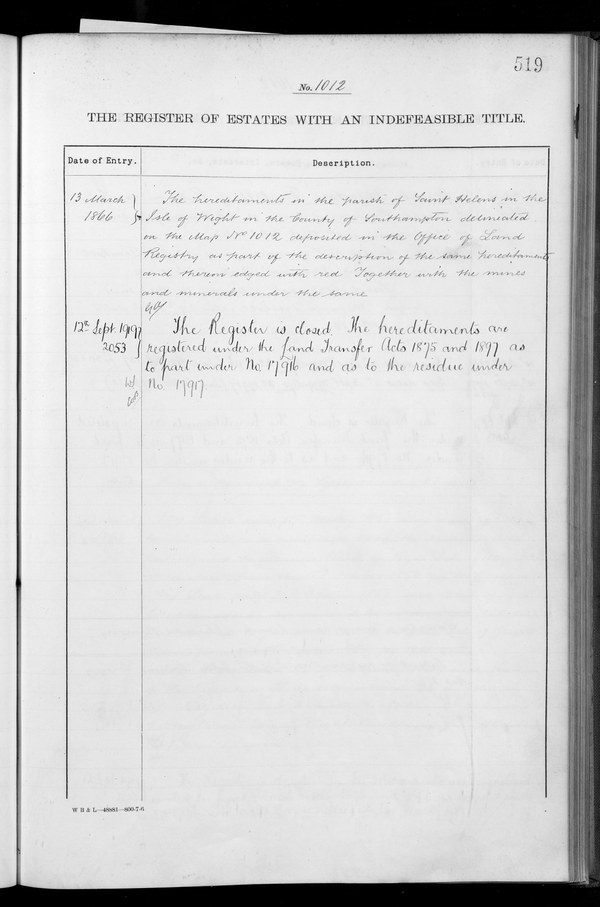 519
No. 1012
THE REGISTER OF ESTATES WITH AN INDEFEASIBLE TITLE.
Date of Entry. Description.
13 March 1866 The hereditaments in the parish of Saint Helens in the
Isle of Wight in the County of Southampton delineated
on the Map No 1012 deposited in the Office of Land
Registry as part of the description of the same hereditaments
and therein edged with red Together with the mines
and minerals under the same
12th Sept The Register is closed. The hereditaments are
2053 registered under the Land Transfer Acts 1875 and 1897 as
to part under No 17916 and as to the residue under
No. 17917
W B & L—48881—800-7-6